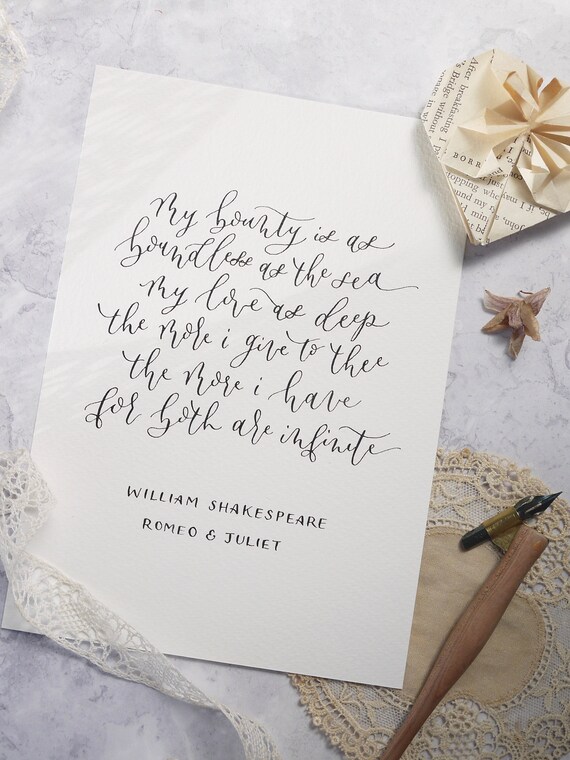 My bounty is as
boundless as the sea
My love as deep
the more i give to thee
the more i have
for both are infinite
WILLIAM SHAKESPEARE
ROMEO & JULIET
After breakfasting
's Bridge without
BORR